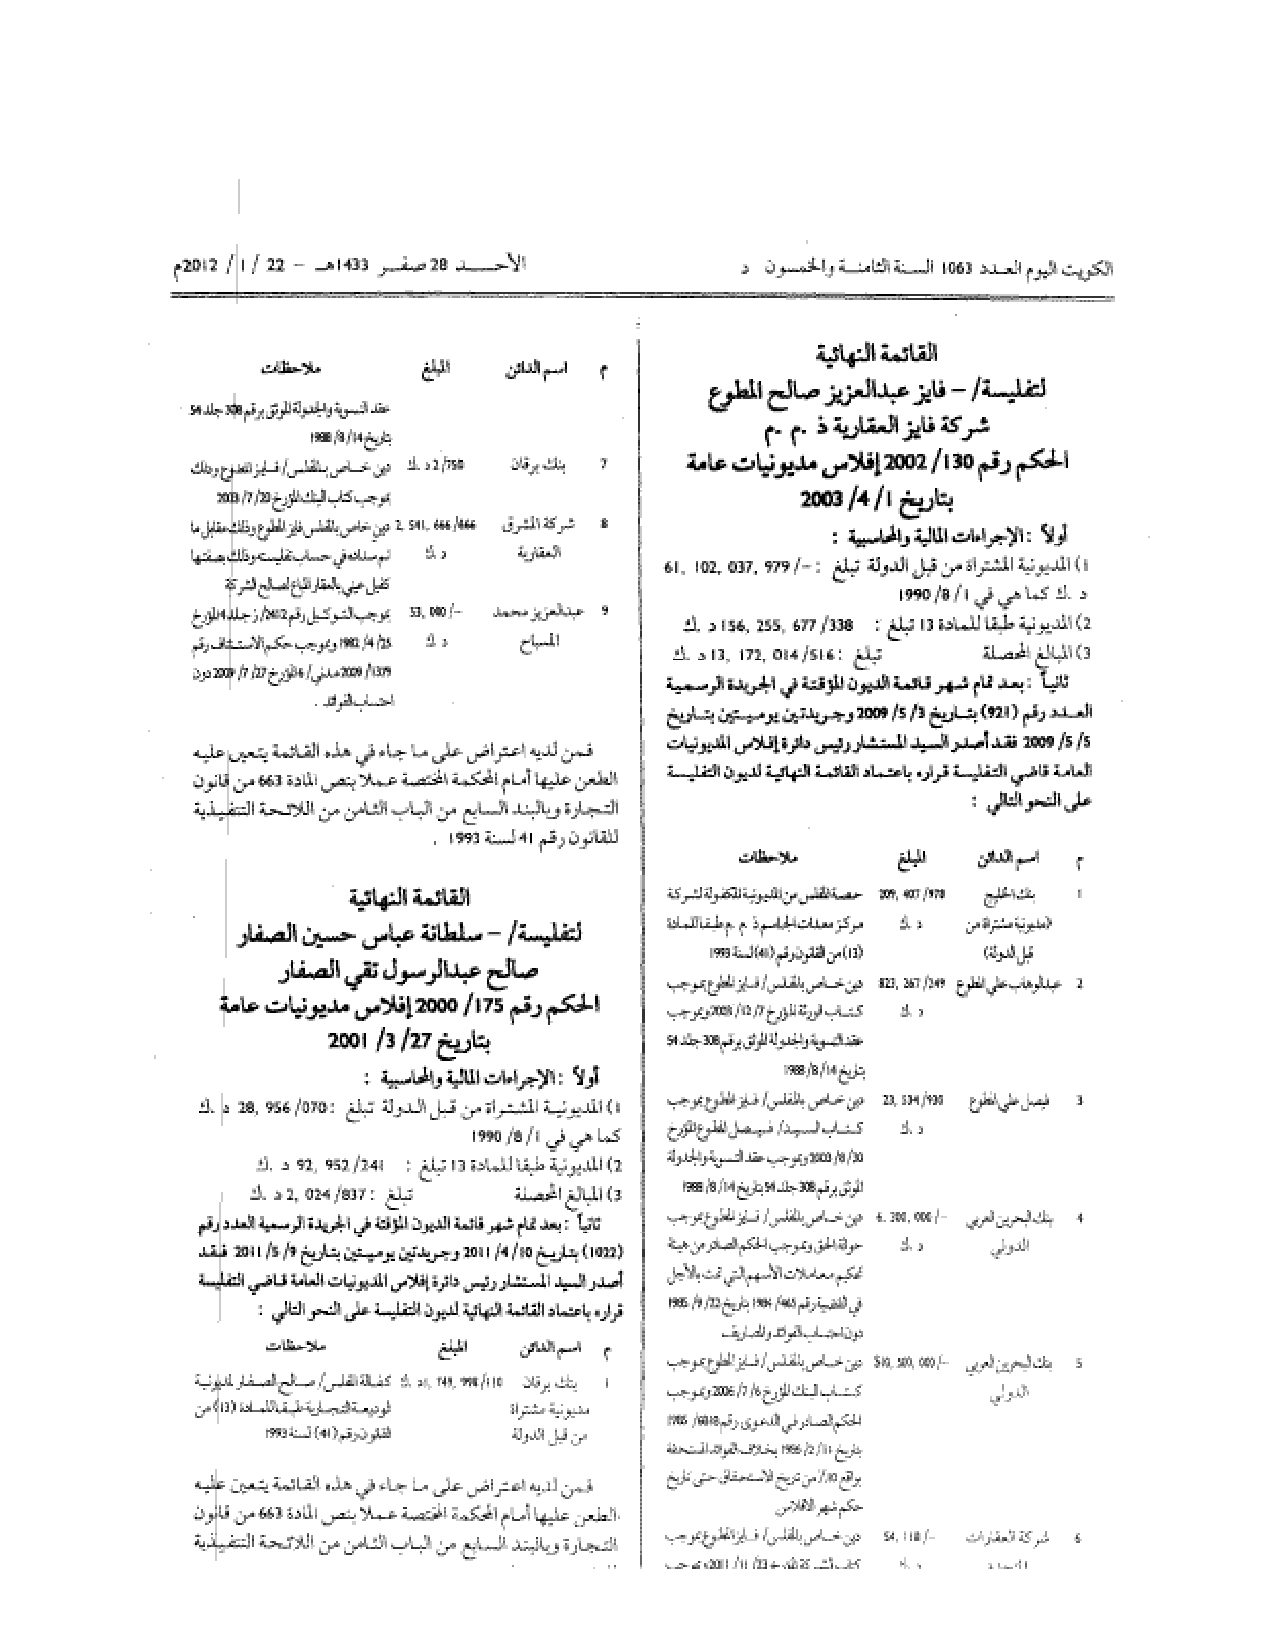 الكويت اليوم العدد 1063 السنة الثامنة والخمسون د
الأحد 28 صفر 1433هـ - 22 / 1 / 2012م
القائمة النهائية
لتفليسة/ - فايز عبدالعزيز صالح المطوع
شركة فايز العقارية ذ .م .م
الحكم رقم 130/ 2002 إفلاس مديونيات عامة
بتاريخ 1/ 4/ 2003
أولاً : الإجراءات المالية والمحاسبية :
1) المديونية المشتراة من قبل الدولة تبلغ : -/ 979 ,037 ,102 ,61
د .ك كما هي في 1/ 8/ 1990
2) المديونية طبقا للمادة 13 تبلغ : 338/ 677 ,255 ,156 د .ك
3) المبالغ المحصلة تبلغ : 516/ 014 ,172 ,13 د .ك
ثانياً : بعد تمام شهر قائمة الديون المؤقتة في الجريدة الرسمية
العدد رقم (921) بتاريخ 3/ 5/ 2009 وجريدتين يوميتين بتاريخ
5/ 5/ 2009 فقد أصدر السيد المستشار رئيس دائرة إفلاس المديونيات
العامة قاضي التفليسة قراره باعتماد القائمة النهائية لديون التفليسة
على النحو التالي :
م اسم الدائن المبلغ ملاحظات
1 بنك الخليج 970/ 407 ,209 حصة المفلس من المديونية المكفولة لشركة
(مديونية مشتراة من د .ك مركز معدات الجاسم ذ .م .م طبقا للمادة
قبل الدولة) (13) من القانون رقم (41) لسنة 1993
2 عبدالوهاب علي المطوع 249/ 267 ,823 دين خاص بالمفلس/ فايز المطوع بموجب
د .ك كتاب الورثة المؤرخ 7/ 12/ 2003 وبموجب
عقد التسوية والجدولة الموثق برقم 308 جلد 54
بتاريخ 14/ 8/ 1988
3 فيصل علي المطوع 930/ 534 ,23 دين خاص بالمفلس/ فايز المطوع بموجب
د .ك كتاب السيد/ فيصل المطوع المؤرخ
30/ 8/ 2003 وبموجب عقد التسوية والجدولة
الموثق برقم 308 جلد 54 بتاريخ 14/ 8/ 1988
4 بنك البحرين العربي -/ 000 ,300 ,6 دين خاص بالمفلس/ فايز المطوع بموجب
الدولي د .ك حوالة الحق وبموجب الحكم الصادر من هيئة
تحكيم معاملات الأسهم التي تمت بالأجل
في القضية رقم 465/ 1984 بتاريخ 22/ 9/ 1985
دون احتساب الفوائد والمصاريف
5 بنك البحرين العربي -/ 000 ,500 ,10$ دين خاص بالمفلس/ فايز المطوع بموجب
الدولي كتاب البنك المؤرخ 6/ 7/ 2006 وبموجب
الحكم الصادر في الدعوى رقم 6818/ 1985
بتاريخ 11/ 2/ 1986 بخلاف الفوائد المستحقة
بواقع 10٪ من تاريخ الاستحقاق حتى تاريخ
حكم شهر الافلاس
6 شركة العقارات -/ 118 ,54 دين خاص بالمفلس/ فايز المطوع بموجب
م اسم الدائن المبلغ ملاحظات
عقد التسوية والجدولة الموثق برقم 308 جلد 54
بتاريخ 14/ 8/ 1988
7 بنك برقان 750/ 2 د .ك دين خاص بالمفلس/ فايز المطوع وذلك
بموجب كتاب البنك المؤرخ 20/ 7/ 2003
8 شركة المشرق 666/ 666 ,541 ,2 دين خاص بالمفلس فايز المطوع وذلك مقابل ما
العقارية د .ك تم سداده في حساب تفليسته وذلك بصفتها
كفيل عيني بالعقار المباع لصالح الشركة
9 عبدالعزيز محمد -/ 000 ,53 بموجب التوكيل رقم 2412/ ز جلد 4 المؤرخ
المسباح د .ك 25/ 4/ 1982 وبموجب حكم الاستئناف رقم
1379/ 2009 مدني/ 6 المؤرخ 27/ 7/ 2009 دون
احتساب الفوائد .
فمن لديه اعتراض على ما جاء في هذه القائمة يتعين عليه
الطعن عليها أمام المحكمة المختصة عملا بنص المادة 663 من قانون
التجارة وبالبند السابع من الباب الثامن من اللائحة التنفيذية
للقانون رقم 41 لسنة 1993 .
القائمة النهائية
لتفليسة/ - سلطانة عباس حسين الصفار
صالح عبدالرسول تقي الصفار
الحكم رقم 175/ 2000 إفلاس مديونيات عامة
بتاريخ 27/ 3/ 2001
أولاً : الإجراءات المالية والمحاسبية :
1) المديونية المشتراة من قبل الدولة تبلغ : 070/ 956 ,28 د .ك
كما هي في 1/ 8/ 1990
2) المديونية طبقا للمادة 13 تبلغ : 241/ 952 ,92 د .ك
3) المبالغ المحصلة تبلغ : 837/ 024 ,2 د .ك
ثانياً : بعد تمام شهر قائمة الديون المؤقتة في الجريدة الرسمية العدد رقم
(1022) بتاريخ 10/ 4/ 2011 وجريدتين يوميتين بتاريخ 9/ 5/ 2011 فقد
أصدر السيد المستشار رئيس دائرة إفلاس المديونيات العامة قاضي التفليسة
قراره باعتماد القائمة النهائية لديون التفليسة على النحو التالي :
م اسم الدائن المبلغ ملاحظات
1 بنك برقان 110/ 998 ,749 د .ك كفالة المفلس/ صالح الصفار لمديونية
مديونية مشتراة لوديعة التجارية طبقا للمادة (13) من
من قبل الدولة القانون رقم (41) لسنة 1993
فمن لديه اعتراض على ما جاء في هذه القائمة يتعين عليه
الطعن عليها أمام المحكمة المختصة عملا بنص المادة 663 من قانون
التجارة وبالبند السابع من الباب الثامن من اللائحة التنفيذية